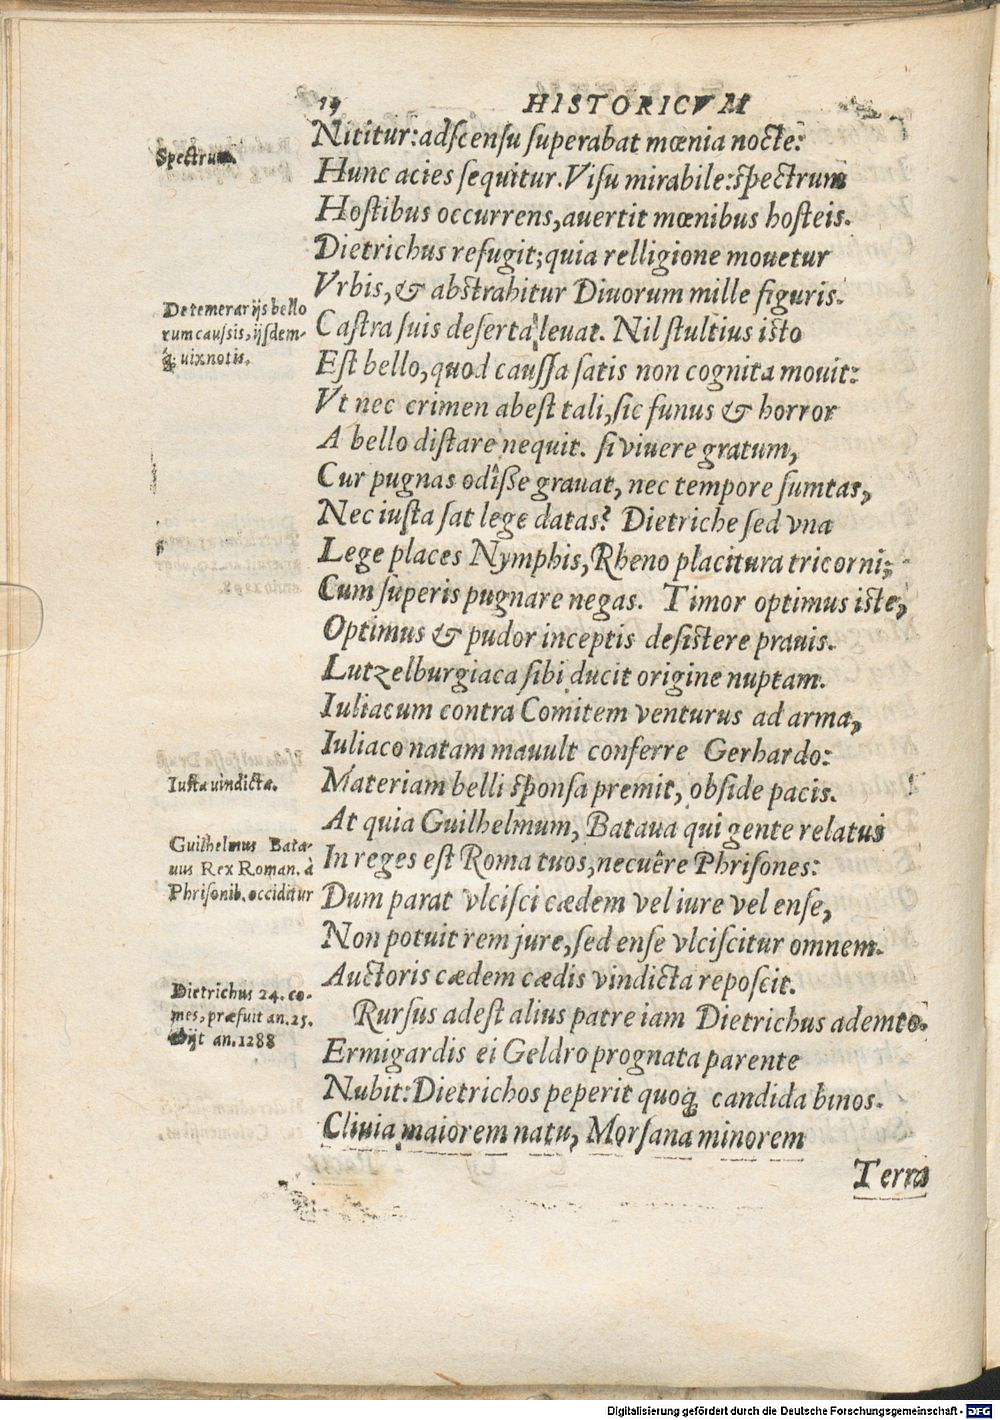 HISTORICVM
Nititur: adscensu superabat mœnia nocte:
Spectrum.
Hunc acies sequitur. Visu mirabile: spectrum
Hostibus occurrens, auertit mœnibus hosteis.
Dietrichus refugit; quia relligione mouetur
Vrbis, & abstrahitur Diuorum mille figuris.
De temerarijs bello
rum caussis, ijsdem-
q́; uix notis.
Castra suis deserta leuat. Nil stultius isto
Est bello, quod caussa satis non cognita mouit:
Vt nec crimen abest tali, sic funus & horror
A bello distare nequit. si viuere gratum,
Cur pugnas odîsse grauat, nec tempore sumtas,
Nec iusta sat lege datas? Dietriche sed vna
Lege places Nymphis, Rheno placitura tricorni;
Cum superis pugnare negas. Timor optimus iste,
Optimus & pudor inceptis desistere prauis.
Lutzelburgiaca sibi ducit origine nuptam.
Iuliacum contra Comitem venturus ad arma,
Iuliaco natam mauult conferre Gerhardo:
Iusta uindicta.
Materiam belli sponsa premit, obside pacis.
At quia Guilhelmum, Bataua qui gente relatus
Guilhelmus Bata-
uus Rex Roman. à
Phrisonib. occiditur
In reges est Roma tuos, necuêre Phrisones:
Dum parat vlcisci cædem vel iure vel ense,
Non potuit rem jure, sed ense vlciscitur omnem.
Auctoris cædem cædis vindicta reposcit.
Dietrichus 24. co-
mes, præfuit an. 25.
Obijt an. 1288
Rursus adest alius patre iam Dietrichus ademto.
Ermigardis ei Geldro prognata parente
Nubit: Dietrichos peperit quoq; candida binos.
Cliuia maiorem natu, Morsana minorem
Terra
Digitalisierung gefördert durch die Deutsche Forschungsgemeinschaft - DFG